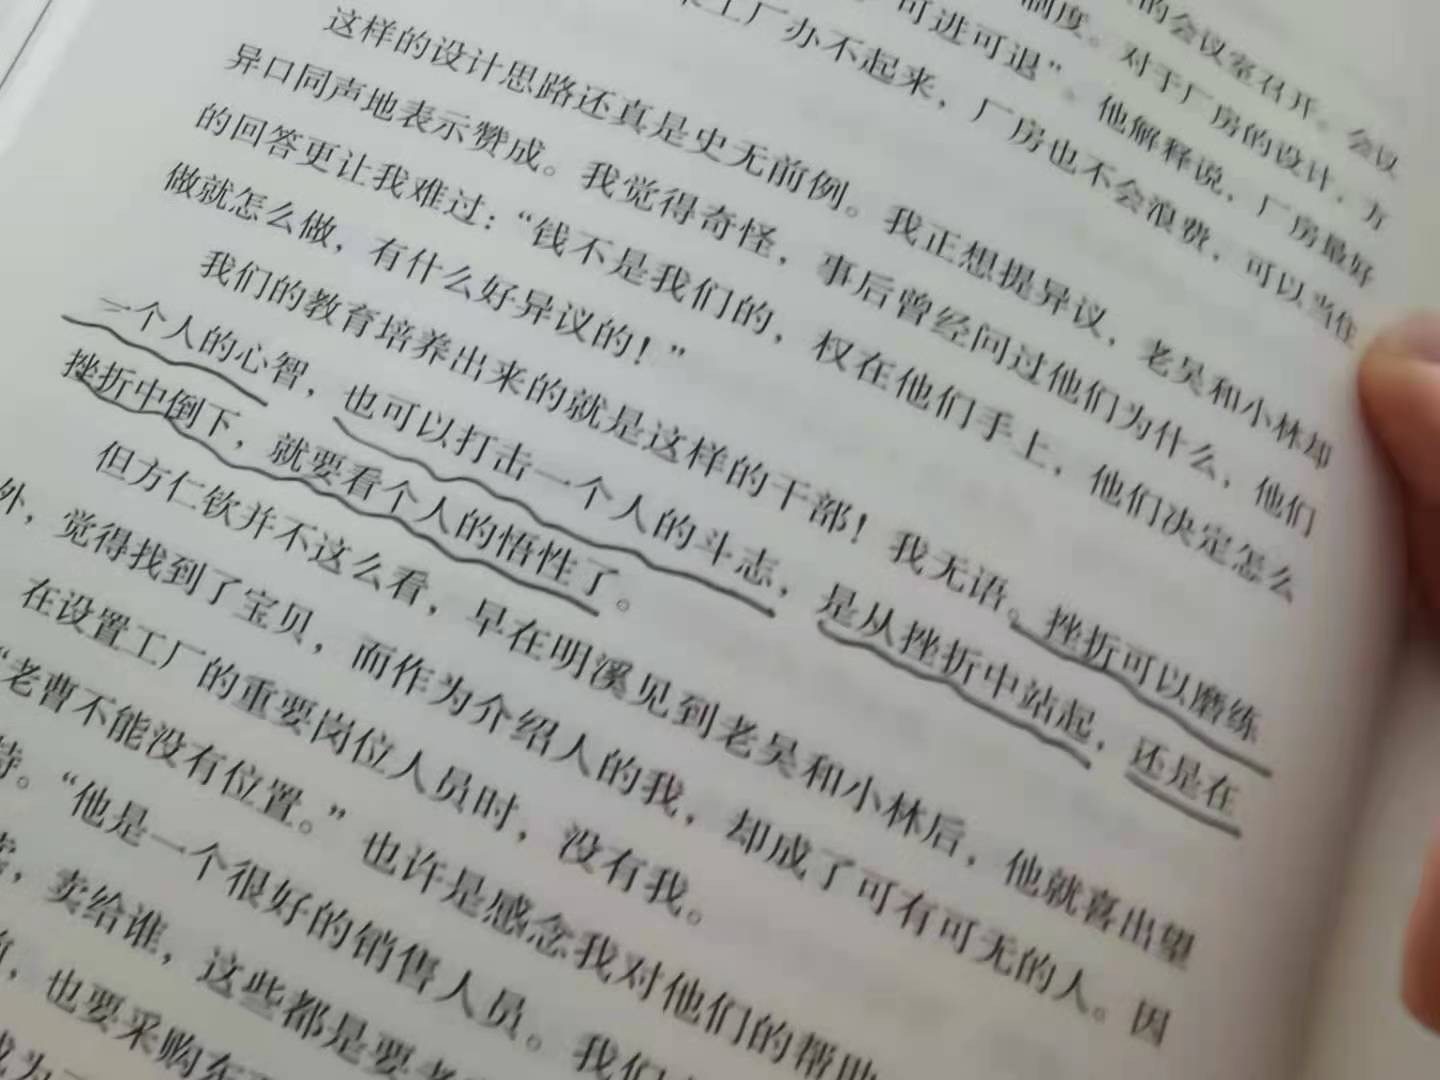 的会议室召开。会议
制度。对于厂房的设计，方
可进可退”。他解释说，厂房最好
工厂办不起来，厂房也不会浪费，可以当住
这样的设计思路还真是史无前例。我正想提异议，老吴和小林却
异口同声地表示赞成。我觉得奇怪，事后曾经问过他们为什么，他们
的回答更让我难过：“钱不是我们的，权在他们手上，他们决定怎么
做就怎么做，有什么好异议的！”
我们的教育培养出来的就是这样的干部！我无语。挫折可以磨练
一个人的心智，也可以打击一个人的斗志，是从挫折中站起，还是在
挫折中倒下，就要看个人的悟性了。
但方仁钦并不这么看，早在明溪见到老吴和小林后，他就喜出望
外，觉得找到了宝贝，而作为介绍人的我，却成了可有可无的人。因
在设置工厂的重要岗位人员时，没有我。
“老曹不能没有位置。”也许是感念我对他们的帮助
持。“他是一个很好的销售人员。我们
，卖给谁，这些都是要考
，也要采购东
成为